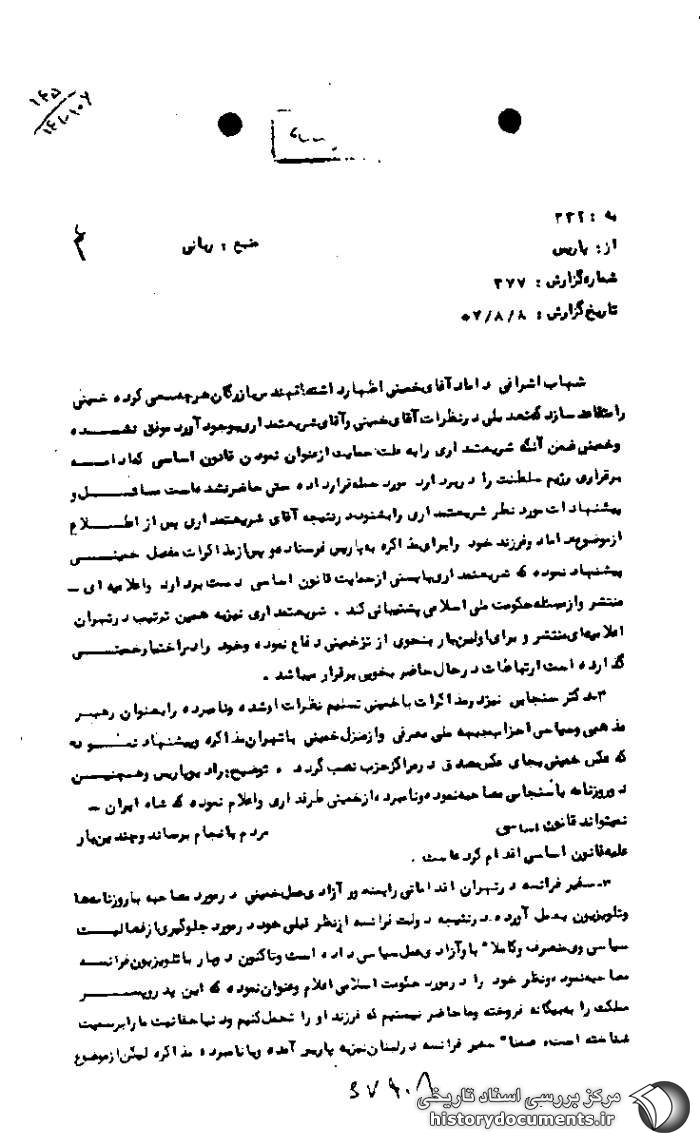 ۱۴۵
به : ۳۳۲
از : پاریس
منبع : ربانی
شماره گزارش : ۳۷۷
تاریخ گزارش : ۵۷/۸/۸
شهاب اشراقی داماد آقای خمینی اظهار داشته مهندس بازرگان هر چه سعی کرده خمینی
را متقاعد سازد که تعدیلی در نظرات آقای خمینی و آقای شریعتمداری بوجود آورد موفق نشـــده
و خمینی ضمن آنکه شریعتمداری را به علت حمایت از عنوان نمودن قانون اساسی که ادامـــه
برقراری رژیم سلطنت را در بر دارد مورد حمله قرار داده حتی حاضر نشده است مسائـــل و
پیشنهادات مورد نظر شریعتمداری را بشنود در نتیجه آقای شریعتمداری پس از اطـــلاع
از موضوع داماد و فرزند خود را برای مذاکره به پاریس فرستاده و پس از مذاکرات مفصل خمینـــی
پیشنهاد نموده که شریعتمداری بایستی از حمایت قانون اساسی دست بردارد و اعلامیه ای ـ
منتشر و از مسئله حکومت ملی اسلامی پشتیبانی کند . شریعتمداری نیز به همین ترتیب در تهران
اعلامیه‌ای منتشر و برای اولین بار بنحوی از تز خمینی دفاع نموده و خود را در اختیار خمینـــی
گذارده است ارتباطات در حال حاضر بخوبی برقرار میباشد .
۲ـ دکتر سنجابی نیز در مذاکرات با خمینی تسلیم نظرات او شده و نامبرده را بعنوان رهبـــر
مذهبی و سیاسی احزاب جبهه ملی معرفی و از منزل خمینی با تهران مذاکره و پیشنهاد نمـــوده
که عکس خمینی بجای عکس مصدق در مراکز حزب نصب گردد . توضیح : رادیو پاریس و همچنیـــن
دو روزنامه با سنجابی مصاحبه نموده و نامبرده از خمینی طرفداری و اعلام نموده که شاه ایران ـ
نمیتواند قانون اساسی مردم بانجام برساند و چندین بار
علیه قانون اساسی اقدام کرده است .
۳ـ سفیر فرانسه در تهران اقداماتی را بمنظور آزادی عمل خمینی در مورد مصاحبه با روزنامه‌ها
و تلویزیون بعمل آورده در نتیجه دولت فرانسه از نظر قبلی خود در مورد جلوگیری از فعالیـــت
سیاسی وی منصرف و کاملا" با و آزادی عمل سیاسی داده است و تاکنون دو بار با تلویزیون فرانســـه
مصاحبه نموده و نظر خود را در مورد حکومت اسلامی اعلام و عنوان نموده که این پدر و پســـر
مملکت را به بیگانه فروخته و ما حاضر نیستیم که فرزند او را تحمل کنیم و دنیا حقانیت ما را برسمیت
شناخته است ضمنا" سفیر فرانسه در لبنان نیز به پاریس آمده و با نامبرده مذاکره لیکن از موضوع
مرکز بررسی اسناد تاریخی
historydocuments.ir